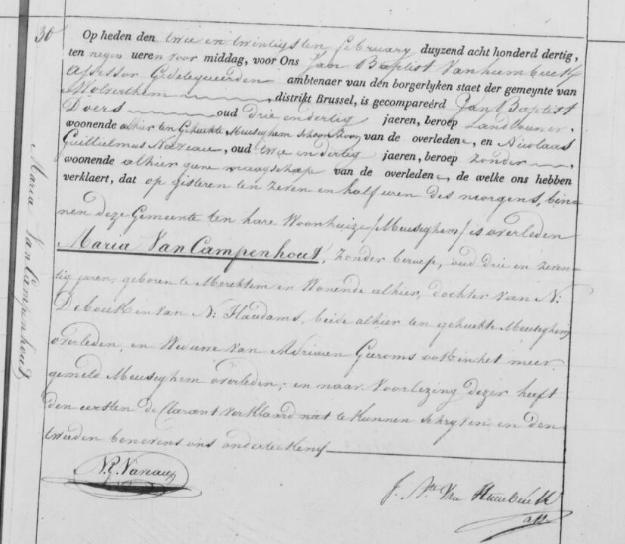 30
Op heden den twee en twintigsten february duyzend acht honderd dertig,
ten negen ueren voor middag, voor Ons Jan Baptist Vanhumbeeck
Assessor Gedelegueerden ambtenaer van den borgerlyken staet der gemeynte van
Wolverthem, distrikt Brussel, is gecompareérd Jan Baptist
Doors oud drie en dertig jaeren, beroep Landbouwer,
woonende alhier ten Gehuchte Meuseghem schoonzoon van de overledene, en Nicolaas
Guillielmus Naveau, oud twee en dertig jaeren, beroep zonder
woonende alhier gene maegschap van de overledene, de welke ons hebben
verklaert, dat op gisteren ten zeven en half uren des morgens, bin-
nen deze Gemeente ten hare Woonhuize /Meuseghem/ is overleden
Maria Van Campenhout, zonder beroep, oud drie en zeven-
tig jaren, geboren te Merchtem en Wonende alhier, dochter van N:
Deboeck en van N: Haudams, beide alhier ten gehuchte Meuseghem
overleden, en Weduwe van Adriaen Gieroms ook in het meer-
gemeld Meuseghem overleden; en naar Voorlezing dezer heeft
den eersten declarant verklaard niet te kunnen schryven en den
tweeden benevens ons onderteekend
Maria Van Campenhout
N.G. Naveau
J. Bte Van Humbeeck